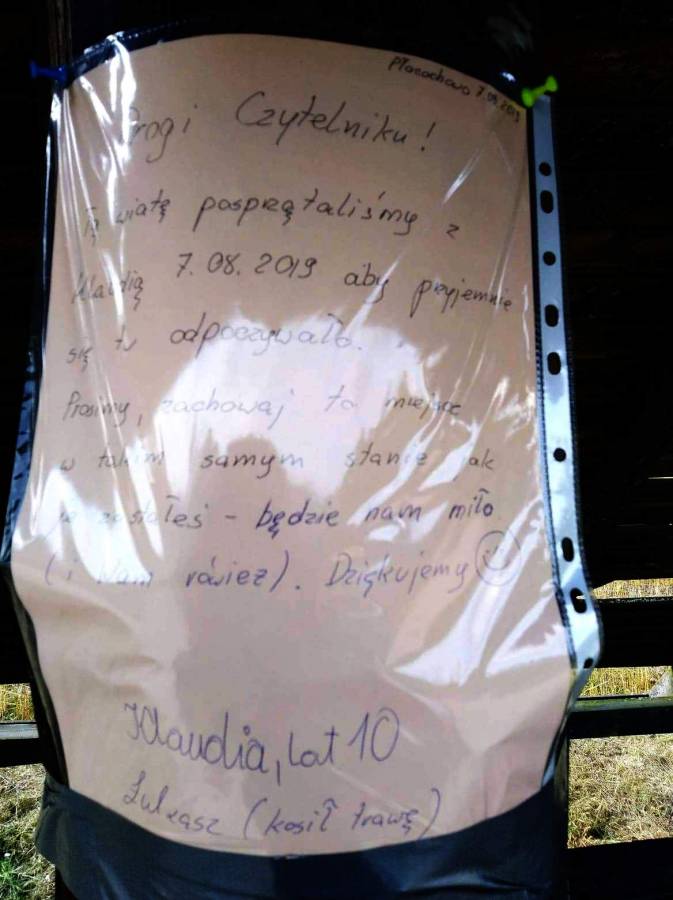 Płocochowo 7.08.2019
Drogi Czytelniku!
Tę wiatę posprzątaliśmy z
Klaudią 7.08.2019 aby przyjemnie
się tu odpoczywało.
Prosimy, zachowaj to miejsce
w takim samym stanie jak
je zostałeś - będzie nam miło
(i Wam rówież). Dziękujemy ☺
Klaudia, lat 10
Łukasz (kosił trawę)